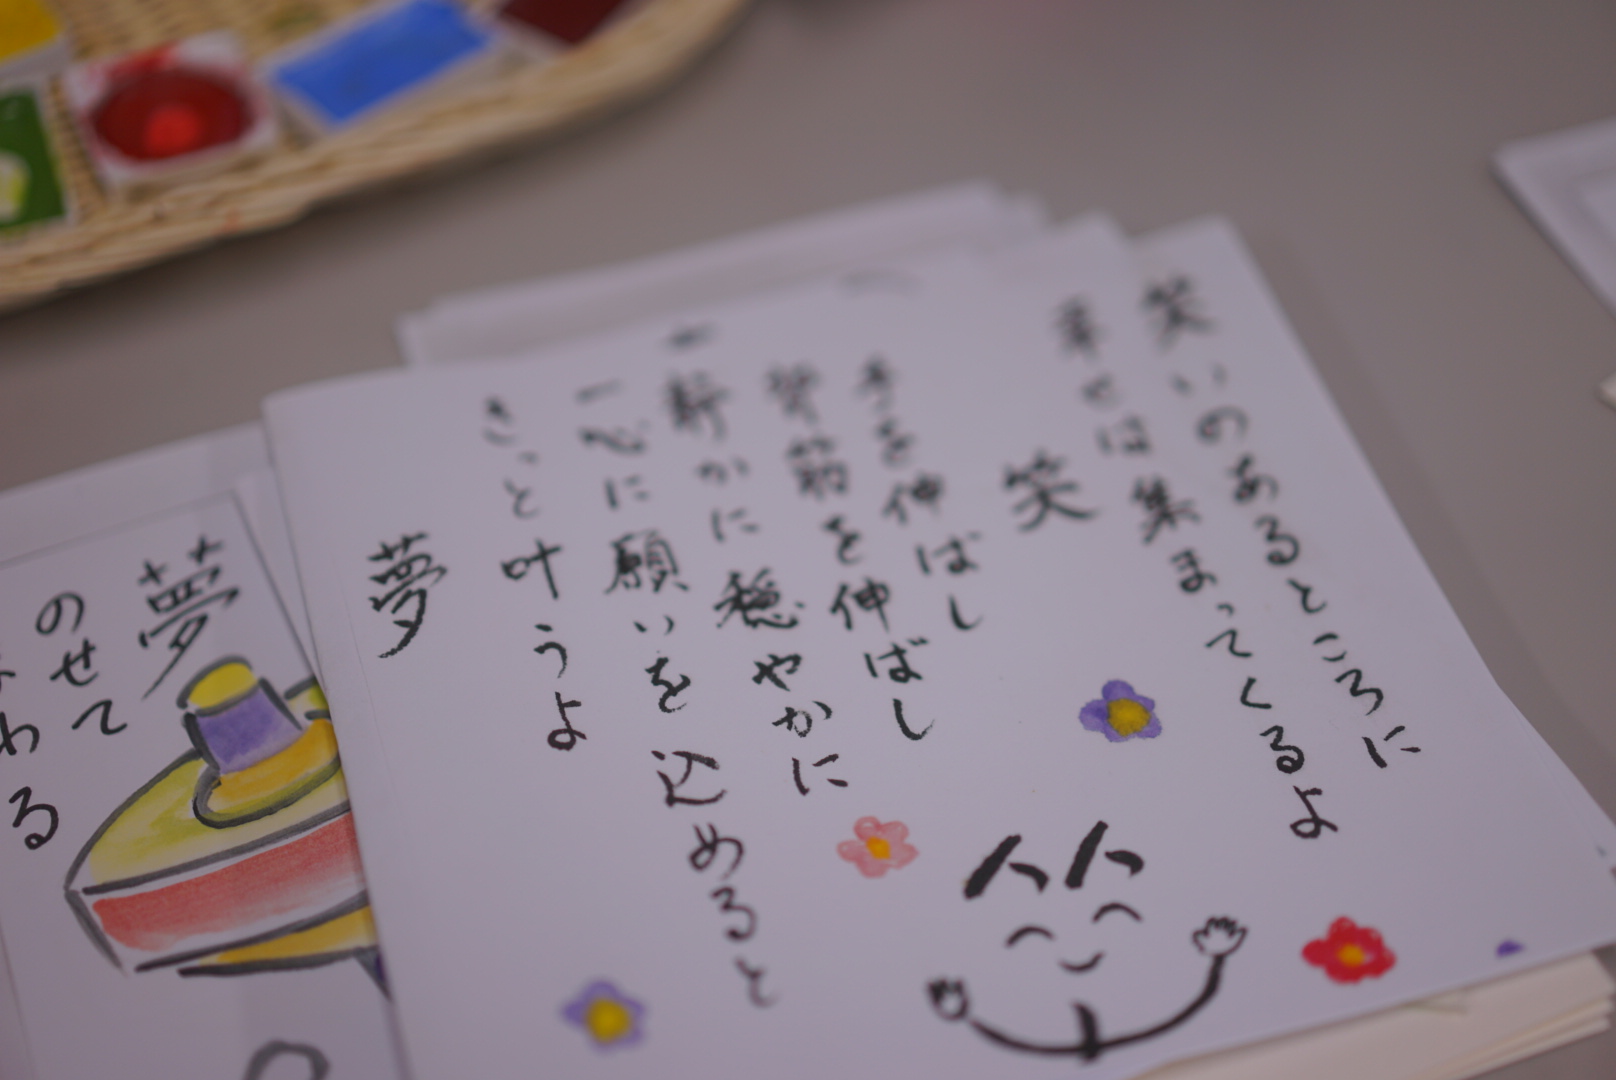 笑いのあるところに
幸せは集まってくるよ
笑
手を伸ばし
背筋を伸ばし
静かに穏やかに
一心に願いを込めると
きっと叶うよ
夢
夢
のせて
わる